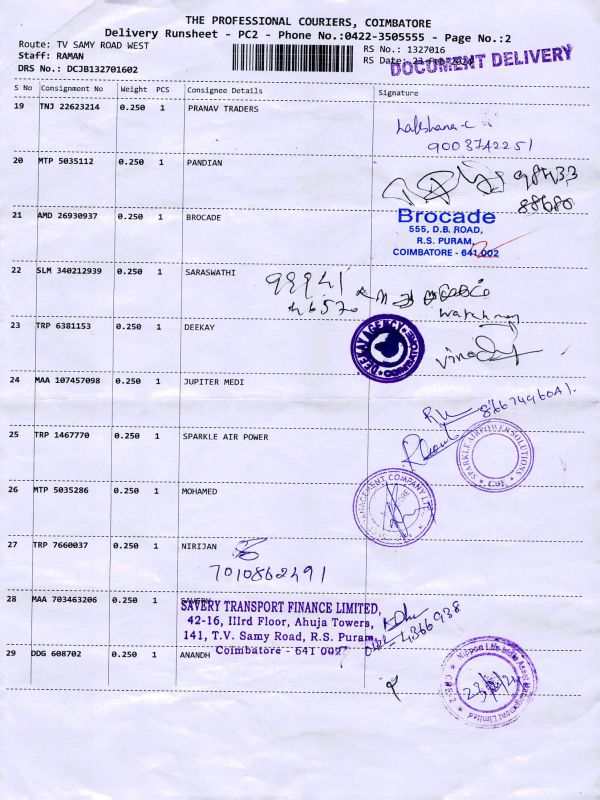 THE PROFESSIONAL COURIERS, COIMBATORE
Delivery Runsheet - PC2 - Phone No.:0422-3505555 - Page No.:2
Route: TV SAMY ROAD WEST
RS No.: 1327016
Staff: RAMAN
RS Date: 23-Feb-2024
DOCUMENT DELIVERY
DRS No.: DCJB132701602
S No Consignment No Weight PCS Consignee Details Signature
19 TNJ 22623214 0.250 1 PRANAV TRADERS
9003742251
20 MTP 5035112 0.250 1 PANDIAN
88680
21 AMD 26930937 0.250 1 BROCADE
Brocade
555, D.B. ROAD,
R.S. PURAM,
COIMBATORE - 641 002
22 SLM 340212939 0.250 1 SARASWATHI
watchman
23 TRP 6381153 0.250 1 DEEKAY
DEEKAY AGENCY
24 MAA 107457098 0.250 1 JUPITER MEDI
25 TRP 1467770 0.250 1 SPARKLE AIR POWER
SPARKLE AIRPOWER SOLUTIONS
CBE
26 MTP 5035286 0.250 1 MOHAMED
MANAGEMENT COMPANY LTD
27 TRP 7660037 0.250 1 NIRIJAN
7010862491
28 MAA 703463206 0.250 1 SAVERY
SAVERY TRANSPORT FINANCE LIMITED,
42-16, IIIrd Floor, Ahuja Towers,
141, T.V. Samy Road, R.S. Puram,
Coimbatore - 641 002
0422-4366938
29 DDG 608702 0.250 1 ANANDH
Nippon Life India Asset Management Limited
CBE-2